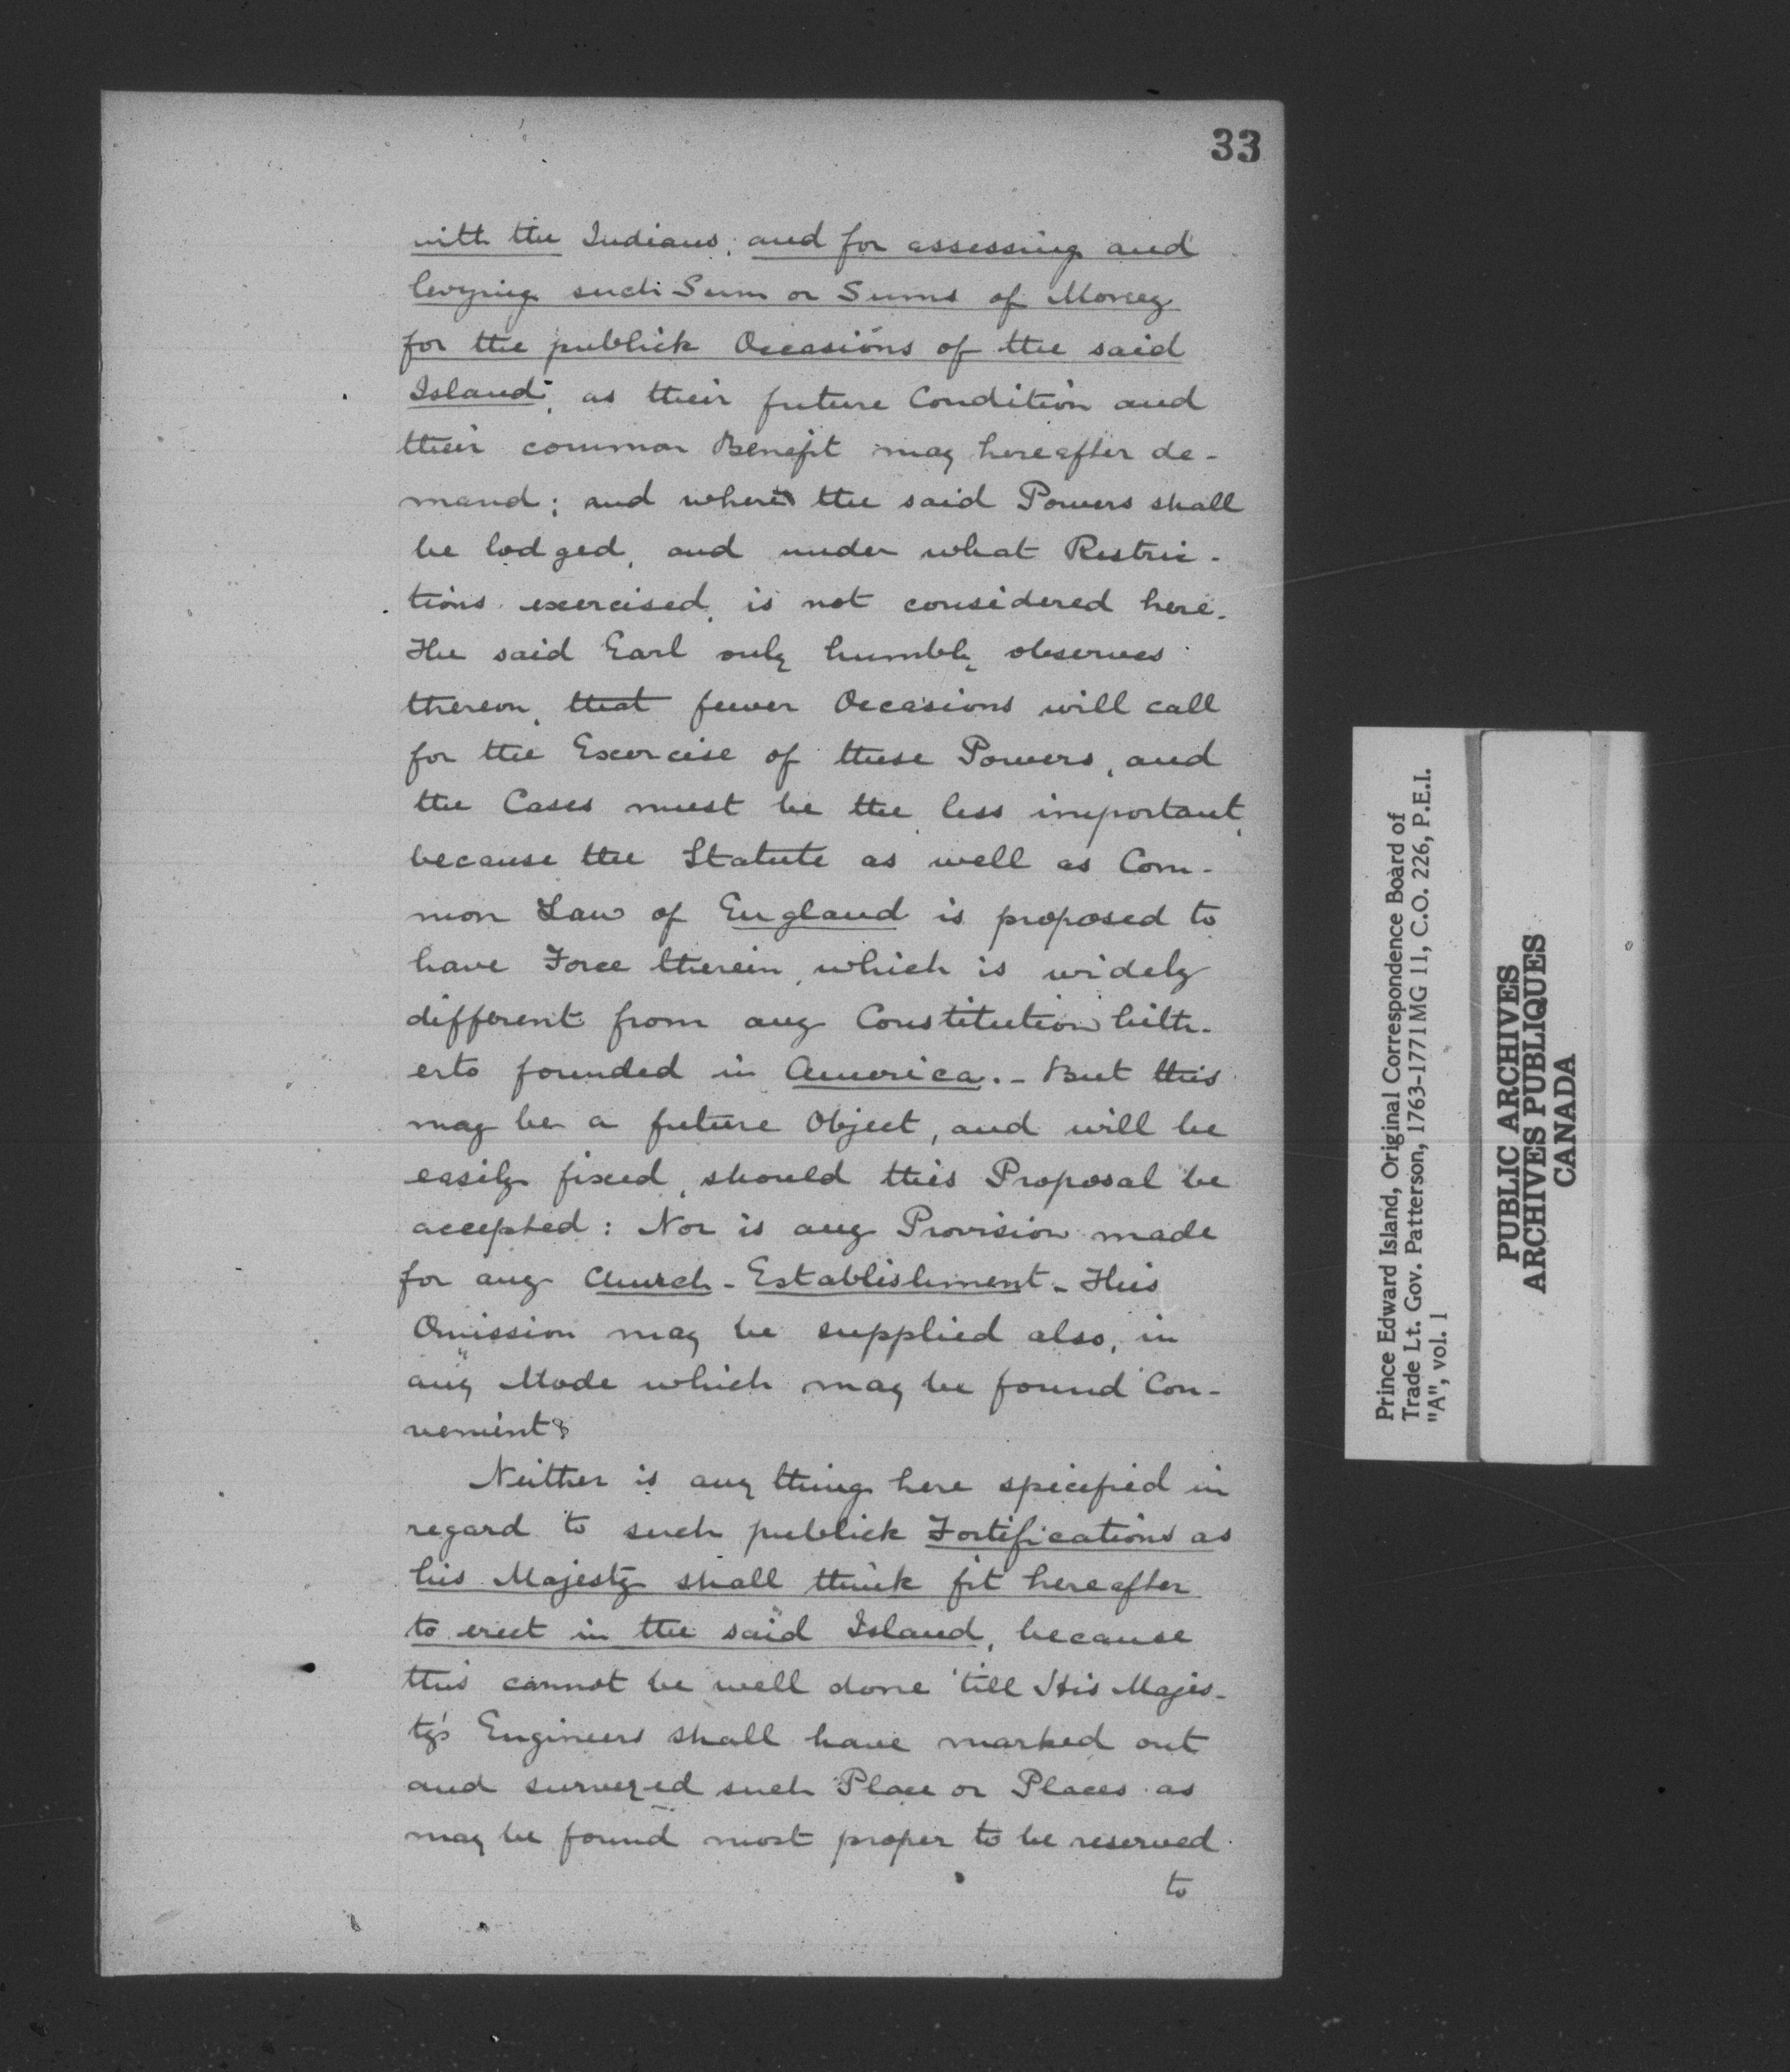 33
with the Indians; and for assessing and
levying such Sum or Sums of Money
for the publick Occasions of the said
Island; as their future Condition and
their common Benefit may hereafter de-
mand; and where the said Powers shall
be lodged, and under what Restric-
tions exercised, is not considered here.
The said Earl only humbly observes
thereon, that fewer Occasions will call
for the Exercise of these Powers, and
the Cases must be the less important,
because the Statute as well as Com-
mon Law of England is proposed to
have Force therein, which is widely
different from any Constitution hith-
erto founded in America. - But this
may be a future Object, and will be
easily fixed, should this Proposal be
accepted: Nor is any Provision made
for any Church - Establishment - This
Omission may be supplied also, in
any Mode which may be found Con-
venient
Neither is any thing here specified in
regard to such publick Fortifications as
his Majesty shall think fit hereafter
to erect in the said Island, because
this cannot be well done 'till His Majes-
ty's Engineers shall have marked out
and surveyed such Place or Places as
may be found most proper to be reserved
to
Prince Edward Island, Original Correspondence Board of
Trade Lt. Gov. Patterson, 1763-1771 MG 11, C.O. 226, P.E.I.
"A", vol. 1
PUBLIC ARCHIVES
ARCHIVES PUBLIQUES
CANADA